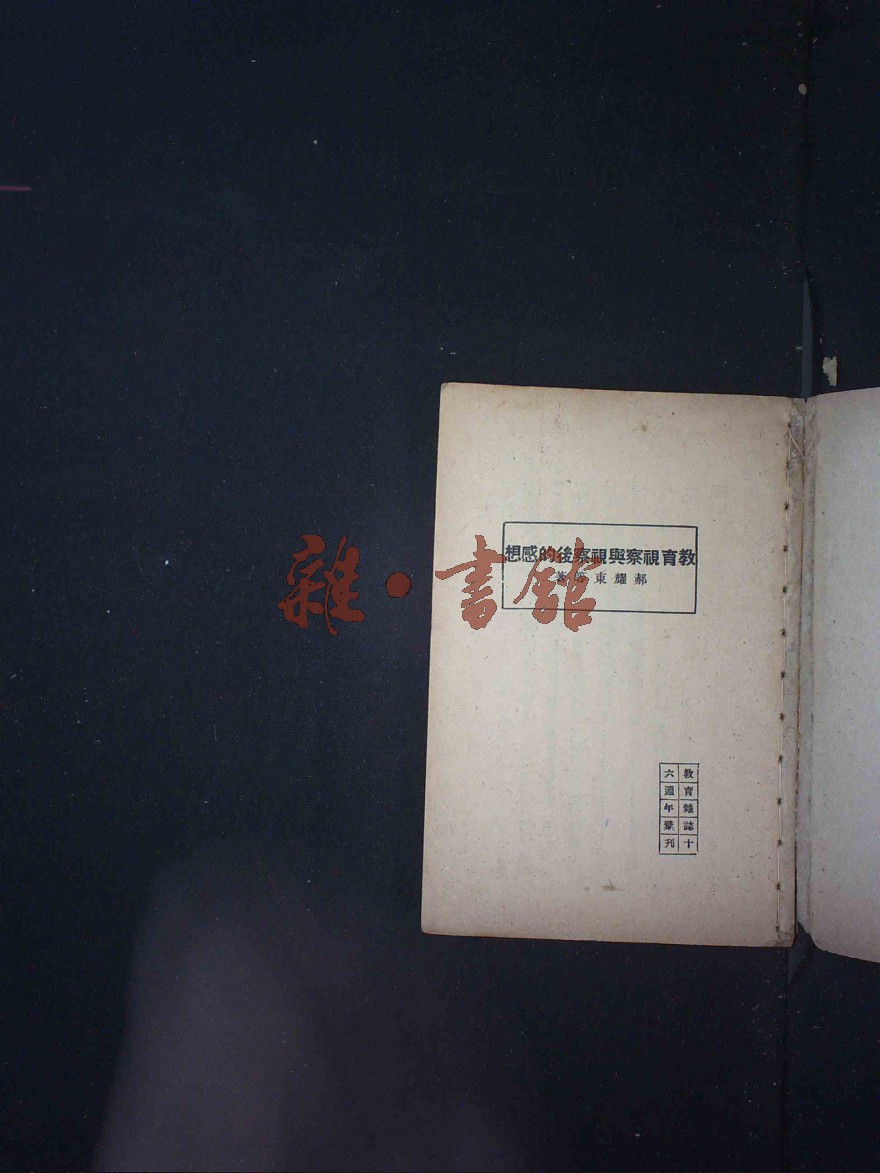 教育視察與視察後的感想
郝耀東著
雜·書館
教育雜誌十
六週年彙刊